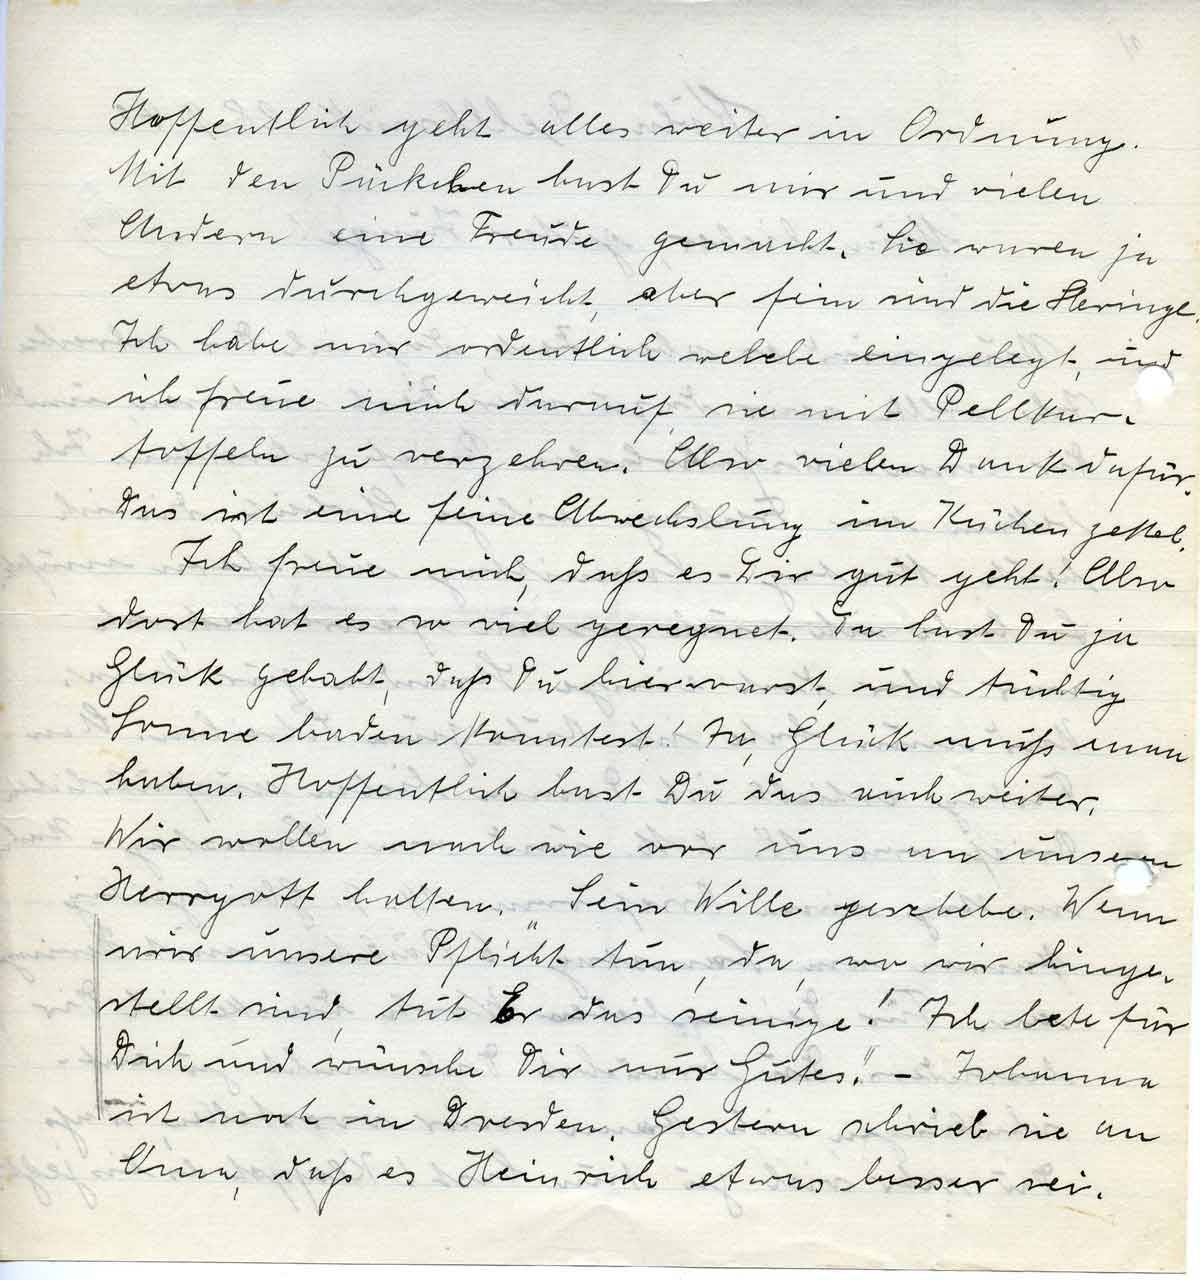 Hoffentlich geht alles weiter in Ordnung.
Mit den Päckchen hast Du mir und vielen
Andern eine Freude gemacht. Sie waren ja
etwas durchgeweicht, aber fein sind die Heringe.
Ich habe mir ordentlich welche eingelegt, und
ich freue mich darauf, sie mit Pellkar-
toffeln zu verzehren. Also vielen Dank dafür.
Das ist eine feine Abwechslung im Küchenzettel.
Ich freue mich, daß es Dir gut geht! Also
dort hat es so viel geregnet. Da hast Du ja
Glück gehabt, daß Du hier warst, und tüchtig
Sonne baden konntest! Ja, Glück muß man
haben. Hoffentlich hast Du das auch weiter.
Wir wollen nach wie vor uns an unseren
Herrgott halten. „Sein Wille geschehe. Wenn
wir unsere Pflicht tun, da, wo wir hinge-
stellt sind, tut Er das seinige! Ich bete für
Dich und wünsche Dir nur Gutes!" – Johanna
ist noch in Dresden. Gestern schrieb sie an
Oma, daß es Heinrich etwas besser sei.